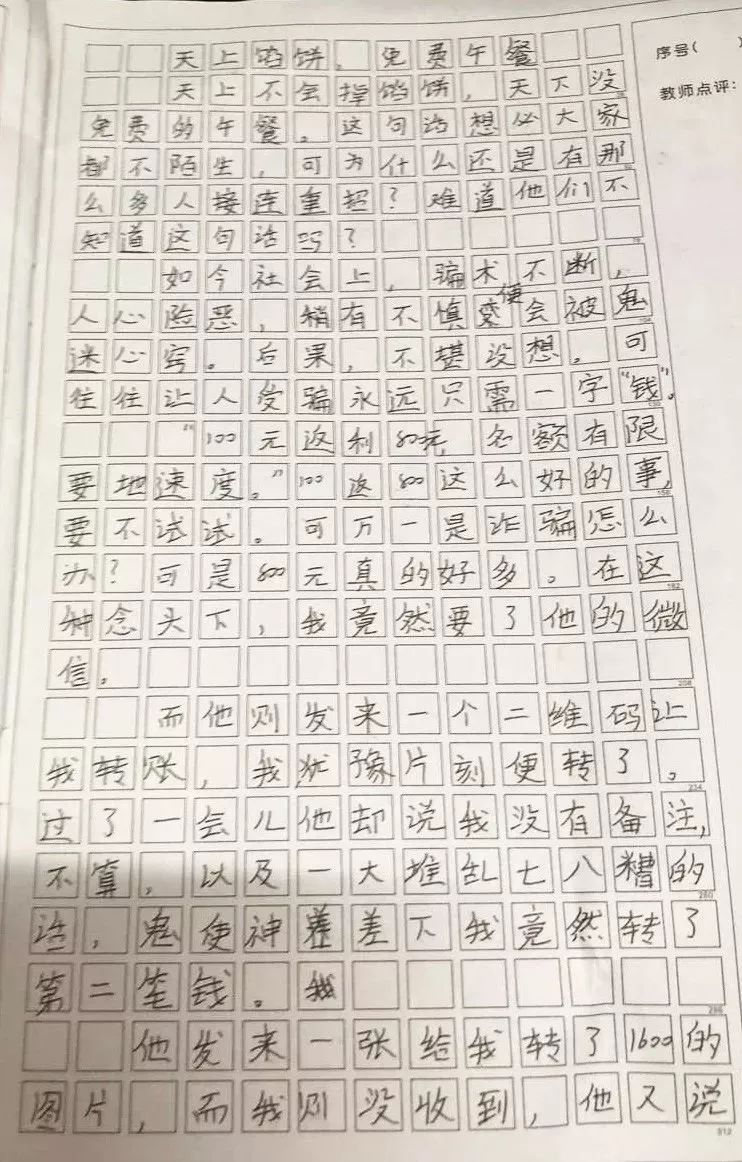 天上馅饼，免费午餐
序号(　)
天上不会掉馅饼，天下没
教师点评：
免费的午餐。这句话想必大家
都不陌生，可为什么还是有那
么多人接连重招？难道他们不
知道这句话吗？
如今社会上，骗术不断，
人心险恶，稍有不慎便会被鬼
迷心窍。后果，不堪设想。可
往往让人受骗永远只需一字“钱”。
“100元返利800元，名额有限
要地速度。”100返800这么好的事，
要不试试。可万一是诈骗怎么
办？可是800元真的好多。在这
种念头下，我竟然要了他的微
信。
而他则发来一个二维码让
我转账，我犹豫片刻便转了。
过了一会儿他却说我没有备注，
不算，以及一大堆乱七八糟的
话，鬼使神差差下我竟然转了
第二笔钱。
他发来一张给我转了1600的
图片，而我则没收到，他又说